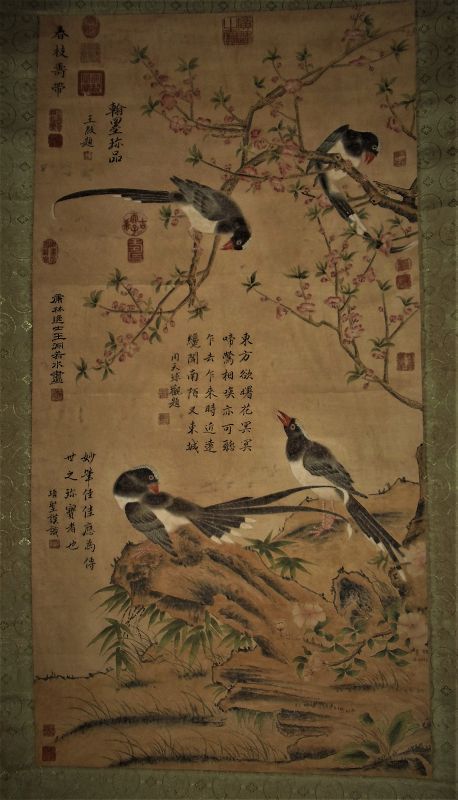 春枝壽帶
翰墨珍品
虎林逸士王淵若水畫
東方欲曙花冥冥
啼鶯相喚亦可聽
乍去乍來時近遠
纔聞南陌又東城
周天球觀題
妙筆佳作應為傳
世之珍寶者也
項聖謨識